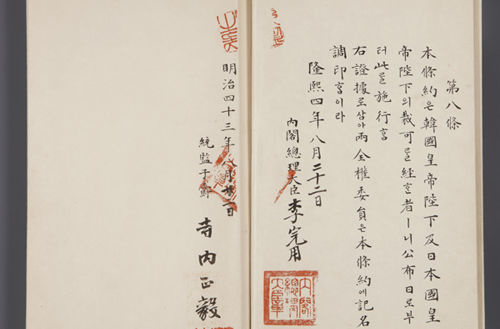 第八條
本條約은韓國皇帝陛下及日本國皇
帝陛下의裁可를經한者ㅣ니公布日로부
터此를施行홈
右證據로삼아兩全權委員은本條約에記名
調印홈이라
隆熙四年八月二十二日
內閣總理大臣 李完用
內閣總理大臣章
明治四十三年八月廿二日
統監子爵 寺內正毅